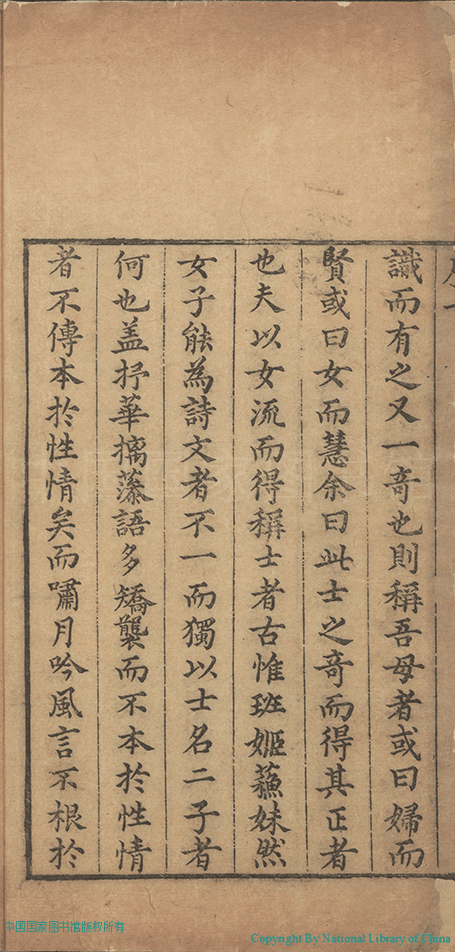 識而有之又一奇也則稱吾母者或曰婦而
賢或曰女而慧余曰此士之奇而得其正者
也夫以女流而得稱士者古惟班姬蘓妹然
女子能為詩文者不一而獨以士名二子者
何也盖抒華摛藻語多矯襲而不本於性情
者不傳本於性情矣而嘯月吟風言不根於
中国国家图书馆版权所有
Copyright By National Library of China